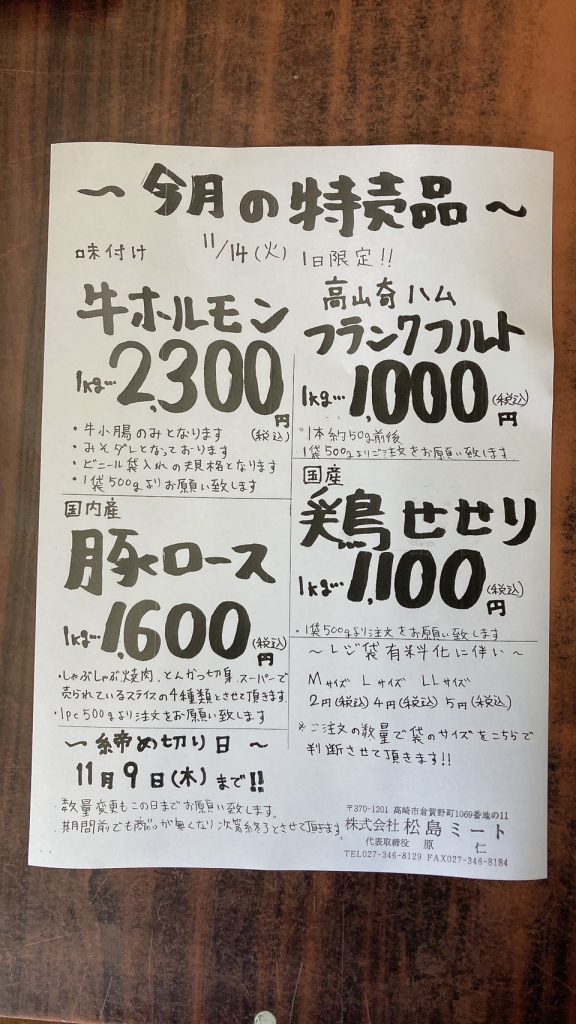 ～ 今月の特売品 ～
11/14(火) 1日限定!!
味付け
牛ホルモン
1kg…2,300円(税込)
・牛小腸のみとなります
・みそダレとなっております
・ビニール袋入れの規格となります
・1袋500gよりお願い致します
高崎ハム
フランクフルト
1kg…1,000円(税込)
・1本約50g前後
1袋500gよりご注文をお願い致します
国内産
豚ロース
1kg…1,600円(税込)
・しゃぶしゃぶ、焼肉、とんかつ切身、スーパーで
売られているスライスの4種類とさせて頂きます
・1pc500gより注文をお願い致します
国産
鶏せせり
1kg…1,100円(税込)
・1袋500gより注文をお願い致します
～レジ袋有料化に伴い～
Mサイズ Lサイズ LLサイズ
2円(税込) 4円(税込) 5円(税込)
※ご注文の数量で袋のサイズをこちらで
判断させて頂きます!!
～ 締め切り日 ～
11月9日(木)まで!!
・数量変更もこの日までお願い致します。
・期間前でも商品が無くなり次第終了とさせて頂きます。
〒370-1201 高崎市倉賀野町1069番地の11
株式会社 松島ミート
代表取締役 原 仁
TEL027-346-8129 FAX027-346-8184